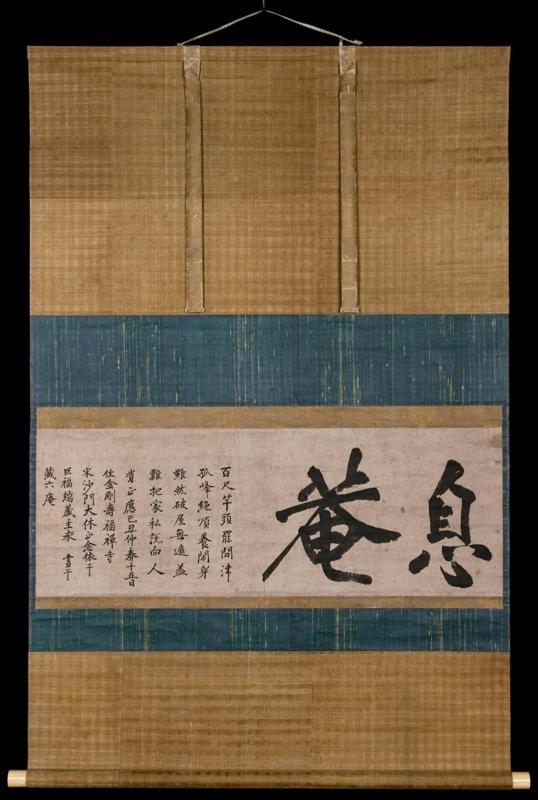 息菴
百尺竿頭罷問津
孤峰絶頂養閑身
雖然破屋無遮蓋
難把家私説向人
旹正應己丑仲春十五日
住金剛壽福禅寺
宋沙門大休正念依于
巨福端藏主永 書于
藏六庵